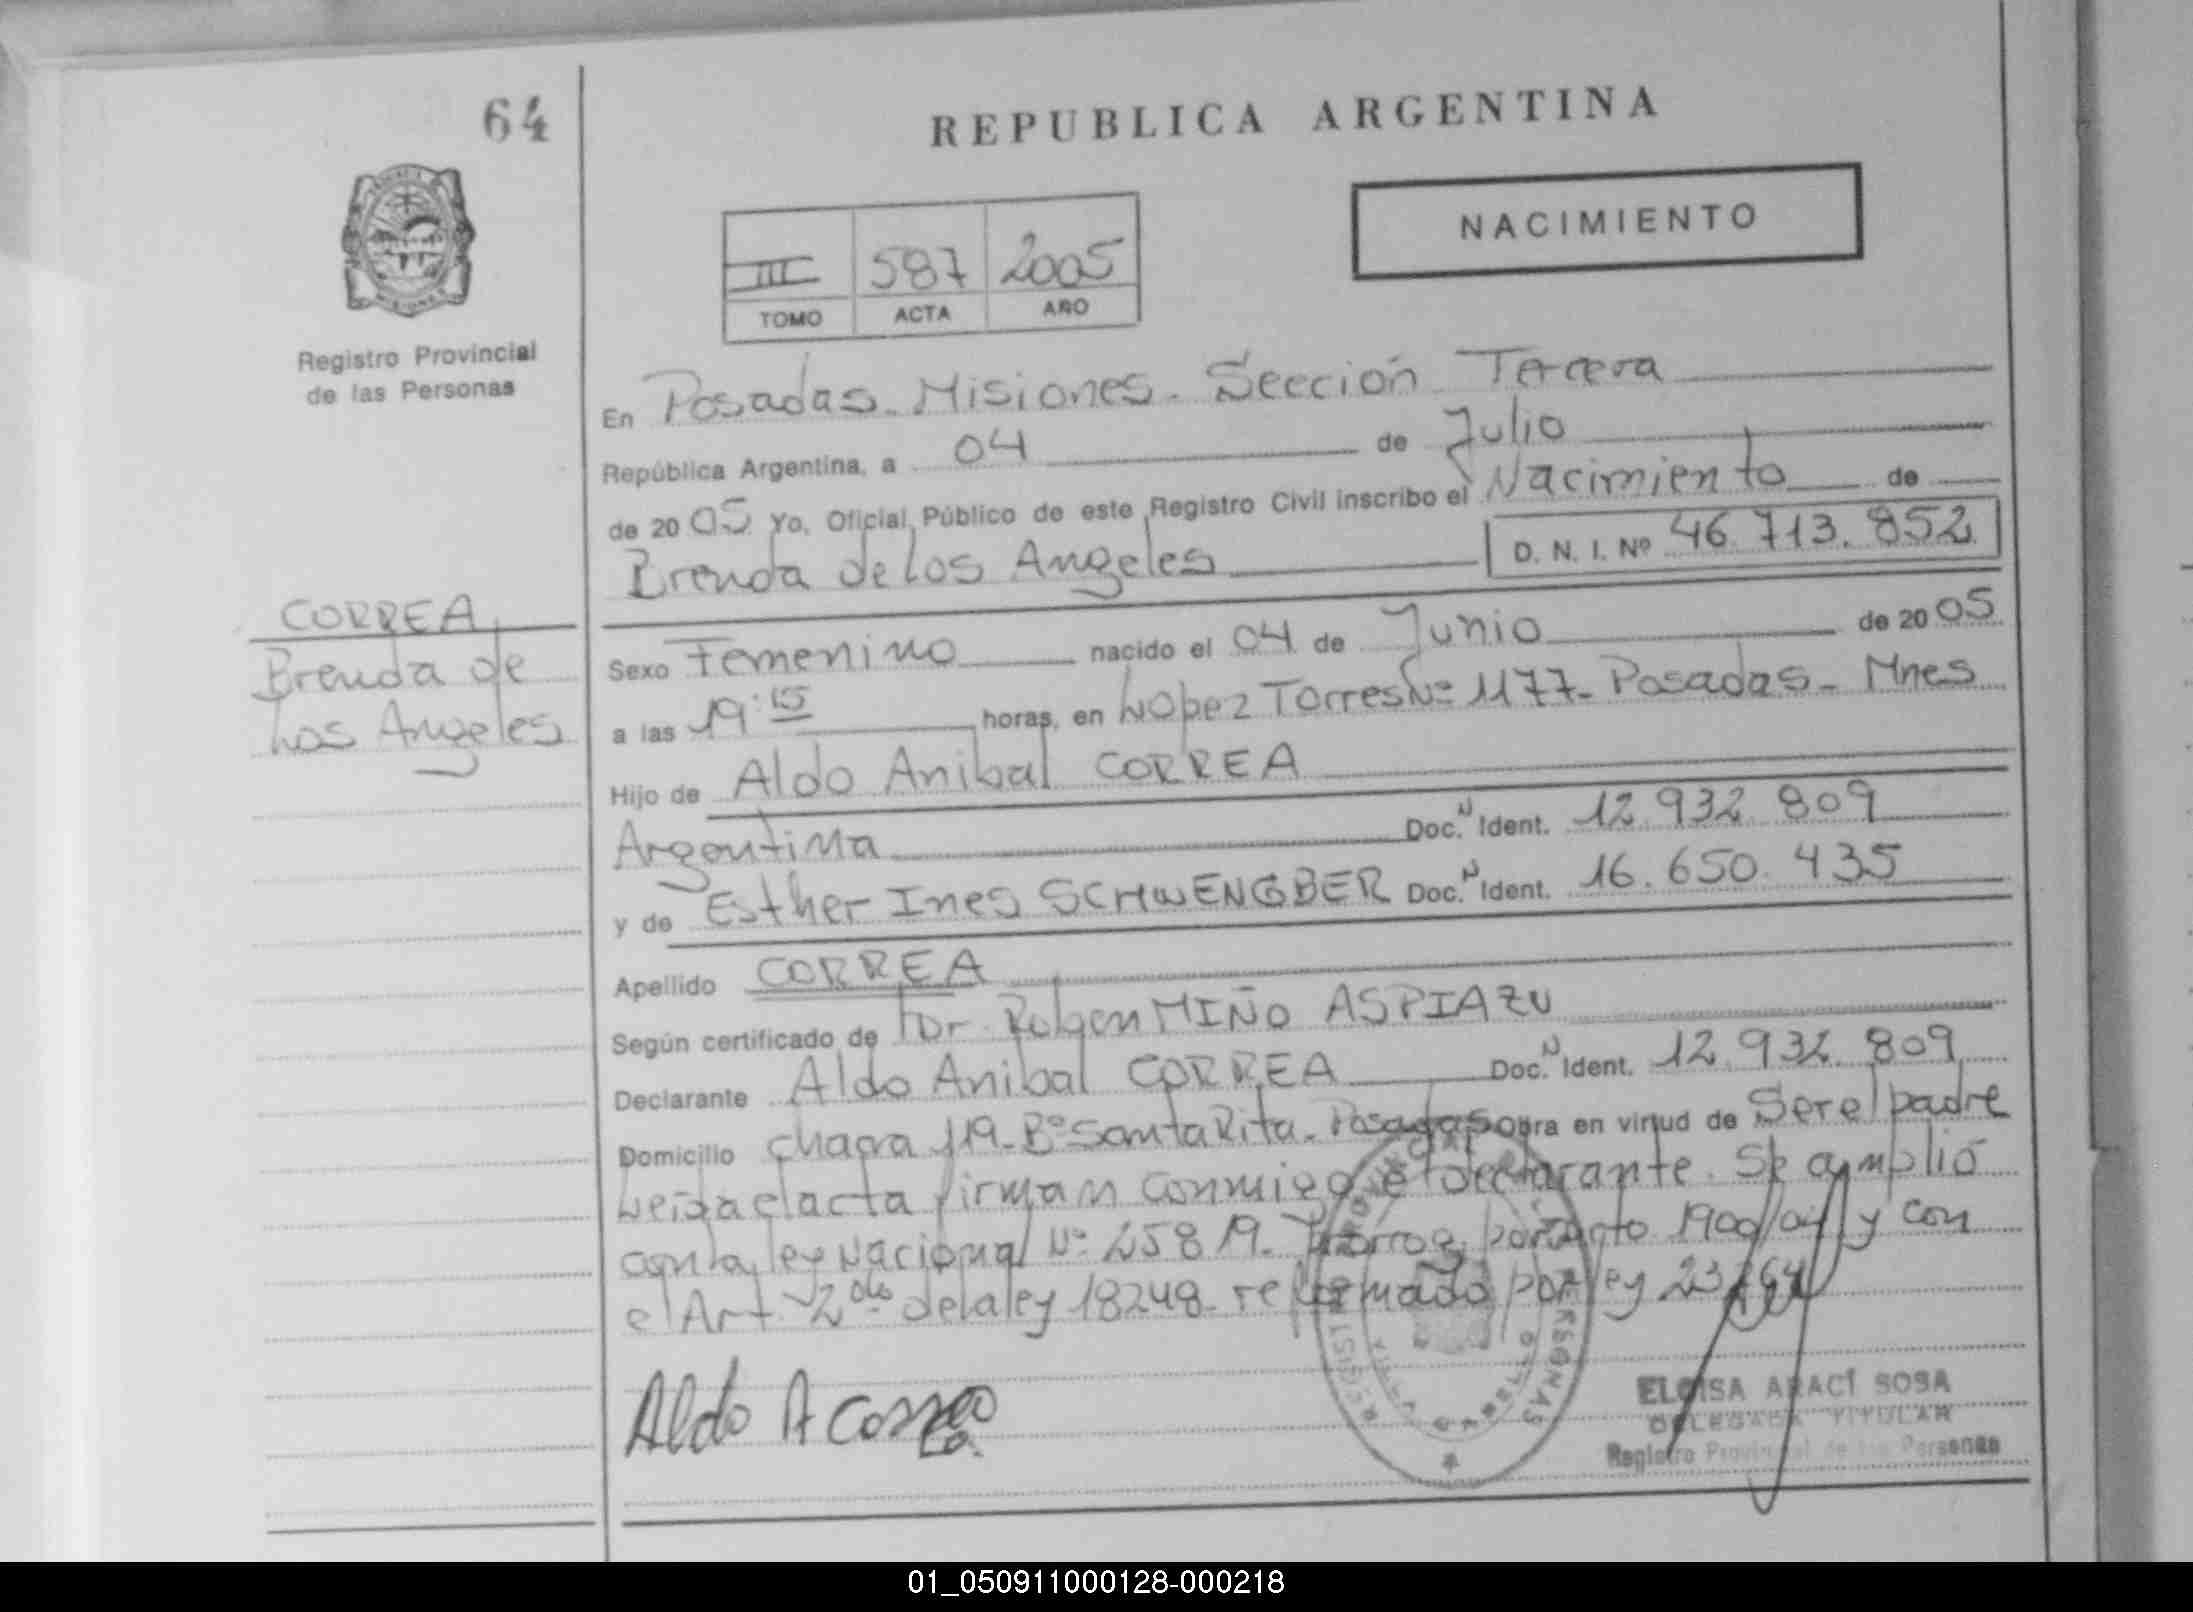 64
REPUBLICA ARGENTINA
NACIMIENTO
III 587 2005
TOMO ACTA AÑO
Registro Provincial
de las Personas
En Posadas. Misiones. Sección Tercera
República Argentina, a 04 de Julio
de 20 05 Yo, Oficial Público de este Registro Civil inscribo el Nacimiento de
Brenda de Los Angeles D. N. I. Nº 46.713.852
CORREA
Brenda de
Los Angeles
Sexo Femenino nacido el 04 de Junio de 20 05
a las 19:15 horas, en Lopez Torres Nº 1177- Posadas- Mnes
Hijo de Aldo Anibal CORREA
Argentina Doc. N Ident. 12.932.809
y de Esther Ines SCHWENGBER Doc. N Ident. 16.650.435
Apellido CORREA
Según certificado de Dr. Ruben MIÑO ASPIAZU
Declarante Aldo Anibal CORREA Doc. N Ident. 12.932.809
Domicilio Chacra 119- Bº Santa Rita. Posadas obra en virtud de Ser el padre
Leida el acta firman conmigo el declarante. Se cumplió
con la ley Nacional Nº 25819. por 1900/04 y con
el Art. 2do de la ley 18248- reformado por ley 23264
Aldo A Correa
ELOISA ARACÍ SOSA
DELEGADA TITULAR
Registro Provincial de las Personas
01_050911000128-000218